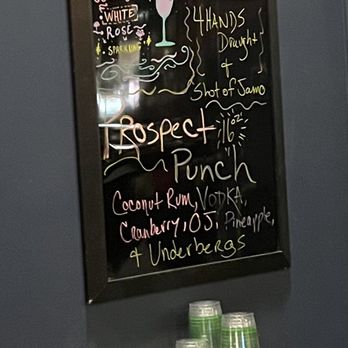 WHITE
Rosé
SPARKLING
4 HANDS
Draught
&
Shot of Jamo
Prospect 16oz
Punch
Coconut Rum, VODKA,
Cranberry, OJ, Pineapple,
& Underbergs